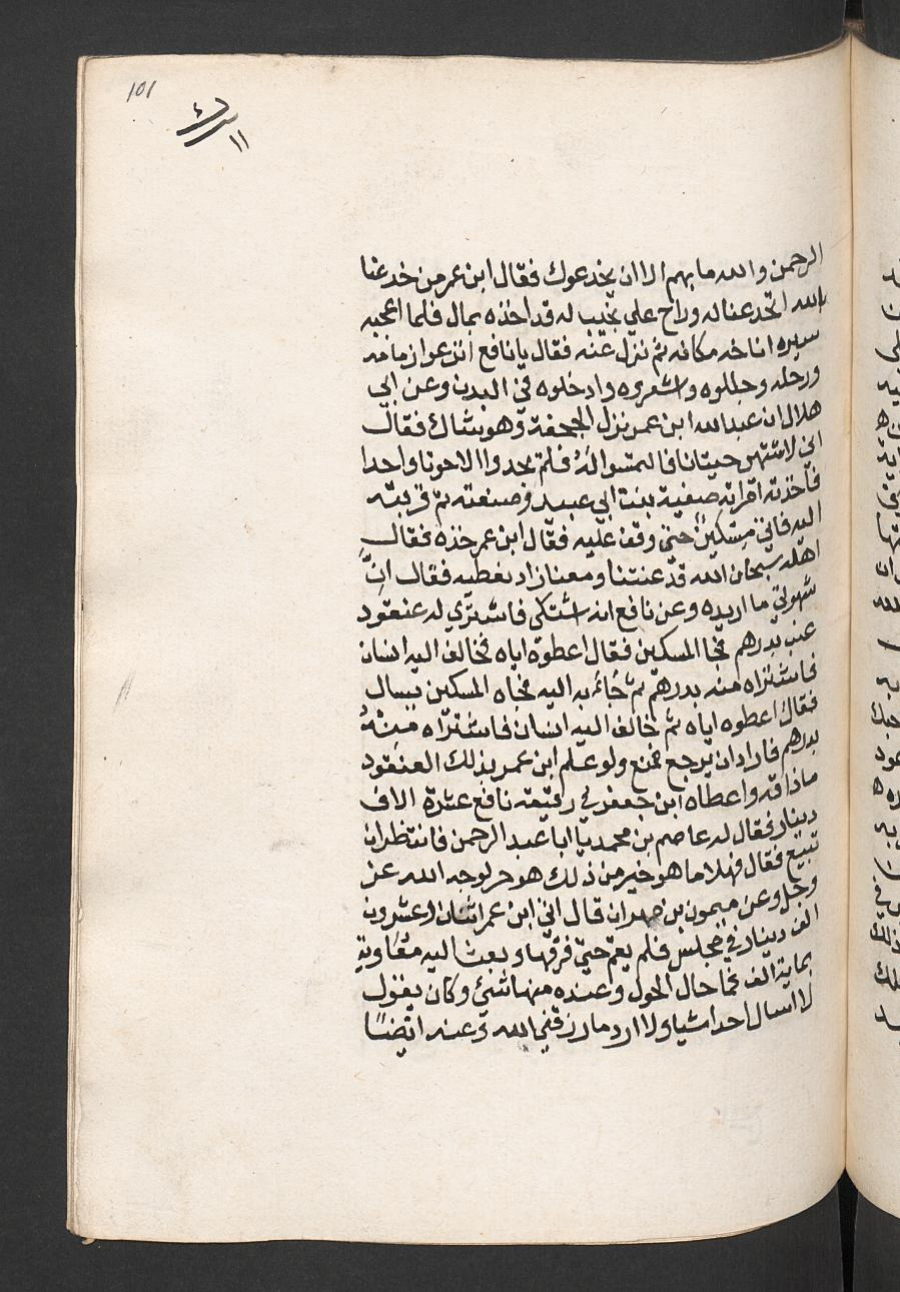 101
الرحمن والله ما بهم الا ان يخدعوك فقال ابن عمر من خدعنا
بالله انخدعنا له وراح علي نجيب له قد اخذه بمال فلما اعجبه
سيره اناخه مكانه ثم نزل عنه فقال يا نافع انزعوا زمامه
ورحله وجللوه واشعروه وادخلوه في البدن وعن ابي
هلال ان عبد الله ابن عمر نزل الجحفة وهو شاك فقال
اني لاشتهي حيتانا فالتمسوا له فلم يجدوا الا حوتا واحدا
فاخذته امراته صفية بنت ابي عبيد فصنعته ثم قربته
اليه فاتي مسكين حتي وقف عليه فقال ابن عمر خذه فقال
اهله سبحان الله قد عنيتنا ومعنا زاد نعطيه فقال ان
شهوتي ما اريده وعن نافع انه اشتكي فاشتري له عنقود
عنب بدرهم فجا المسكين فقال اعطوه اياه فخالف اليه انسان
فاشتراه منه بدرهم ثم جاء به اليه فجاه المسكين يسال
فقال اعطوه اياه ثم خالف اليه انسان فاشتراه منه
بدرهم فاراد ان يرجع فمنع ولو علم ابن عمر بذلك العنقود
ما ذاقه واعطاه ابن جعفر في رقيقه نافع عشرة الاف
دينار فقال له عاصم بن محمد يا ابا عبد الرحمن فانتظر ان
تبيع فقال فهلا ما هو خير من ذلك هو حر لوجه الله عز
وجل وعن ميمون بن مهران قال اتي ابن عمر اثنان وعشرون
الف دينار في مجلس فلم يقم حتي فرقها وبعث اليه معاوية
بماية الف فما حال الحول وعنده منها شيء وكان يقول
لا اسال احدا شيا ولا ارد ما رزقني الله وعنه ايضا